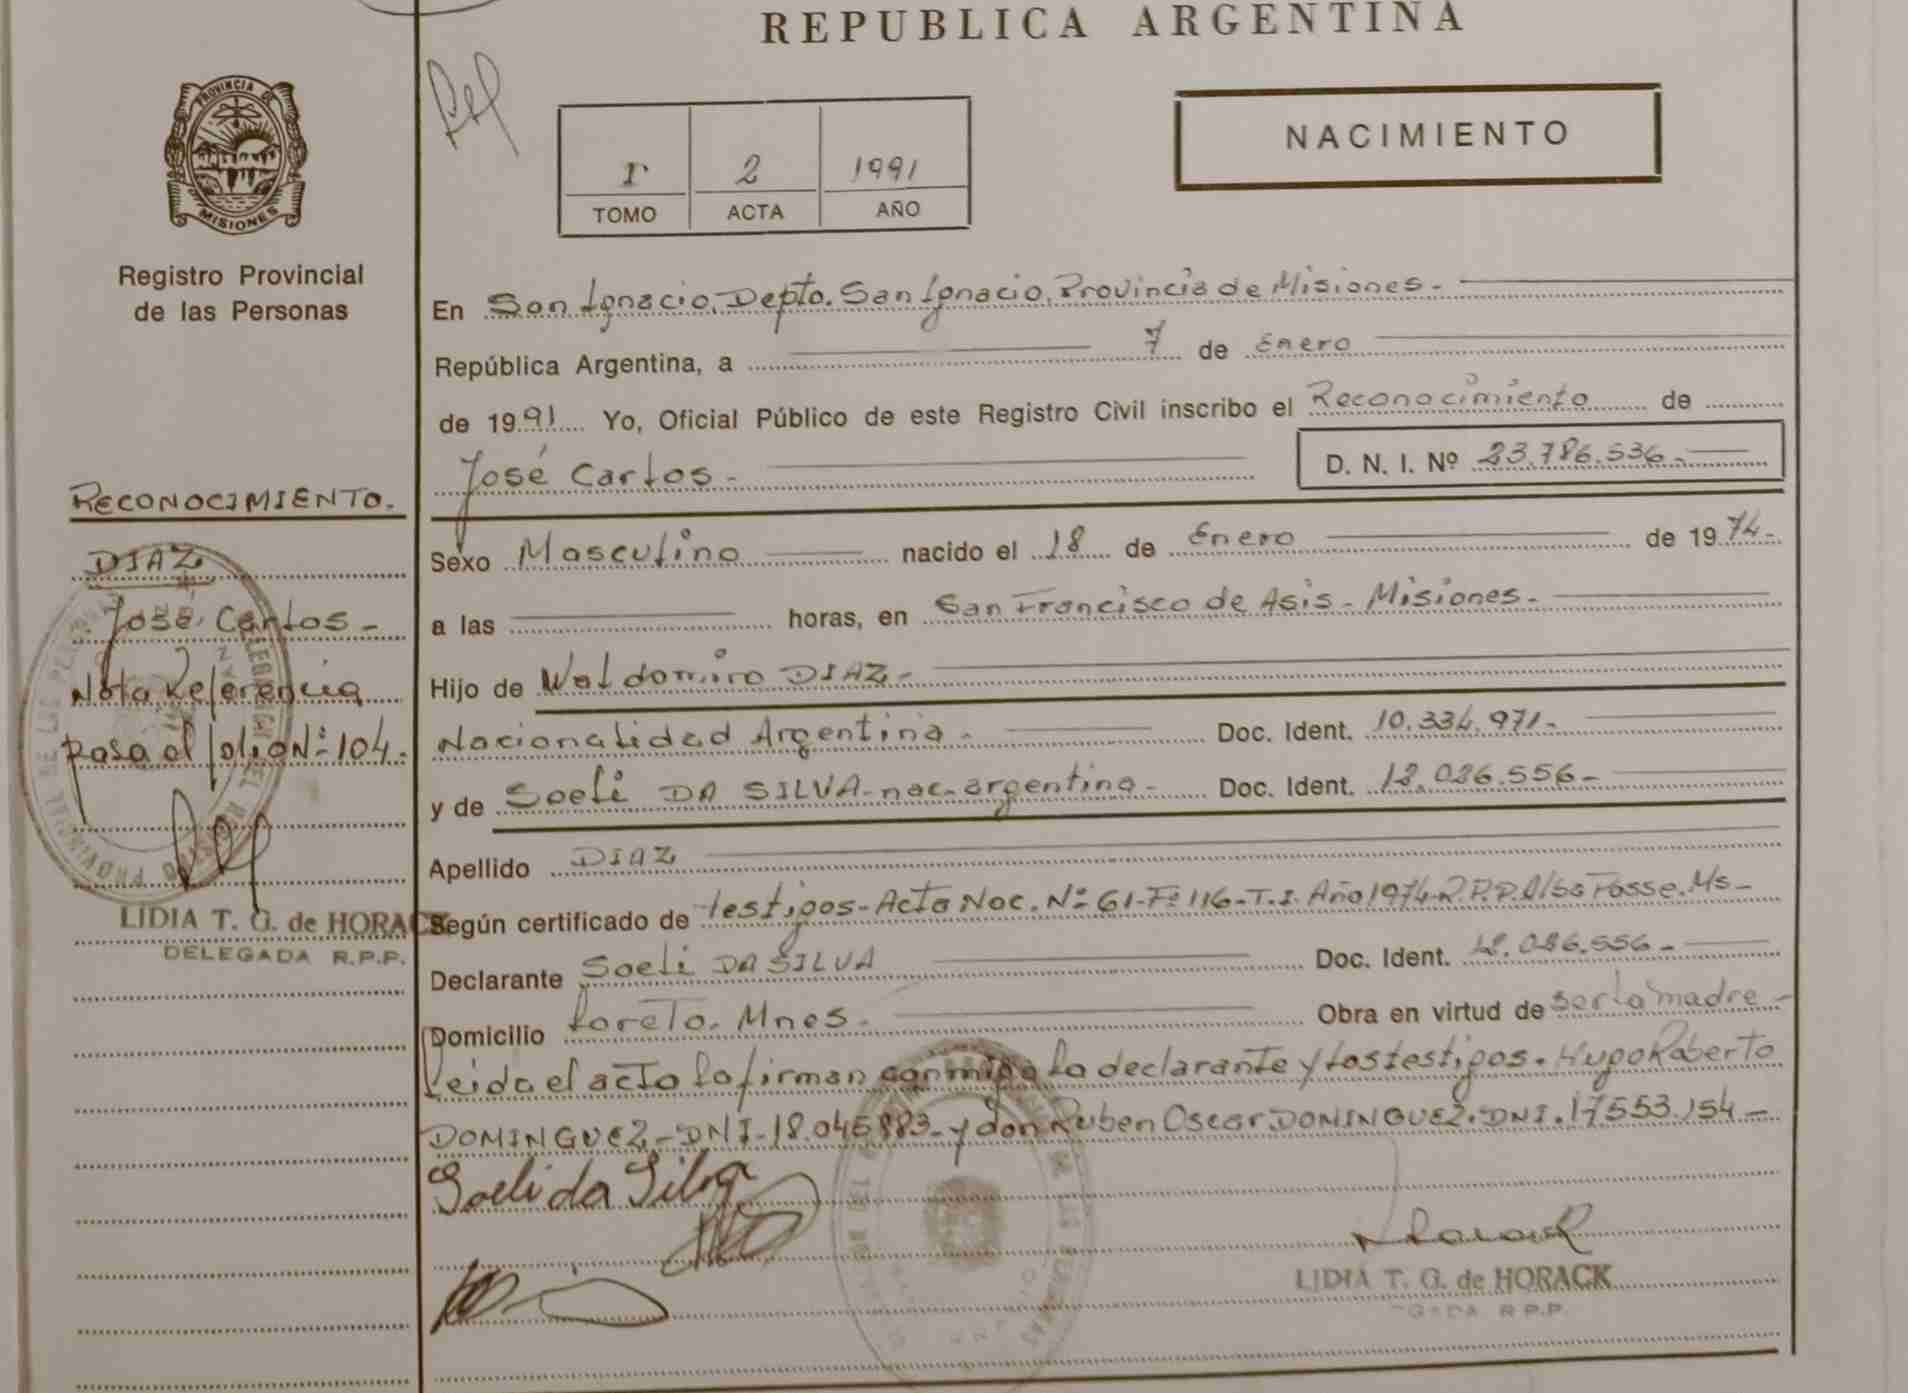 REPUBLICA ARGENTINA
PROVINCIA DE
MISIONES
Registro Provincial
de las Personas
I 2 1991
TOMO ACTA AÑO
NACIMIENTO
En San Ignacio, Depto. San Ignacio, Provincia de Misiones.-
República Argentina, a 7 de Enero
de 1991 Yo, Oficial Público de este Registro Civil inscribo el Reconocimiento de
José Carlos.- D. N. I. Nº 23.786.536.-
Sexo Masculino nacido el 18 de Enero de 1974.-
a las horas, en San Francisco de Asis - Misiones.-
Hijo de Waldomiro DIAZ.-
Nacionalidad Argentina.- Doc. Ident. 10.334.971.-
y de Soeli DA SILVA-nac-argentina.- Doc. Ident. 12.026.556-
Apellido DIAZ
Según certificado de testigos-Acta Nac. Nº 61-Fº 116-T.I. Año 1974-R.P.P. Alba Posse. Ms-
Declarante Soeli DA SILVA Doc. Ident. 12.026.556-
Domicilio Loreto. Mnes. Obra en virtud de ser la madre.-
Leida el acta la firman conmigo la declarante y los testigos. Hugo Roberto
DOMINGUEZ-DNI-18.045.883-y don Ruben Oscar DOMINGUEZ.DNI.17.553.154-
Soeli da Silva
LIDIA T. G. de HORACK
GADA R.P.P.
RECONOCIMIENTO.
DIAZ
José Carlos-
Nota Referencia
pasa al folio Nº 104.
LIDIA T. G. de HORACK
DELEGADA R.P.P.